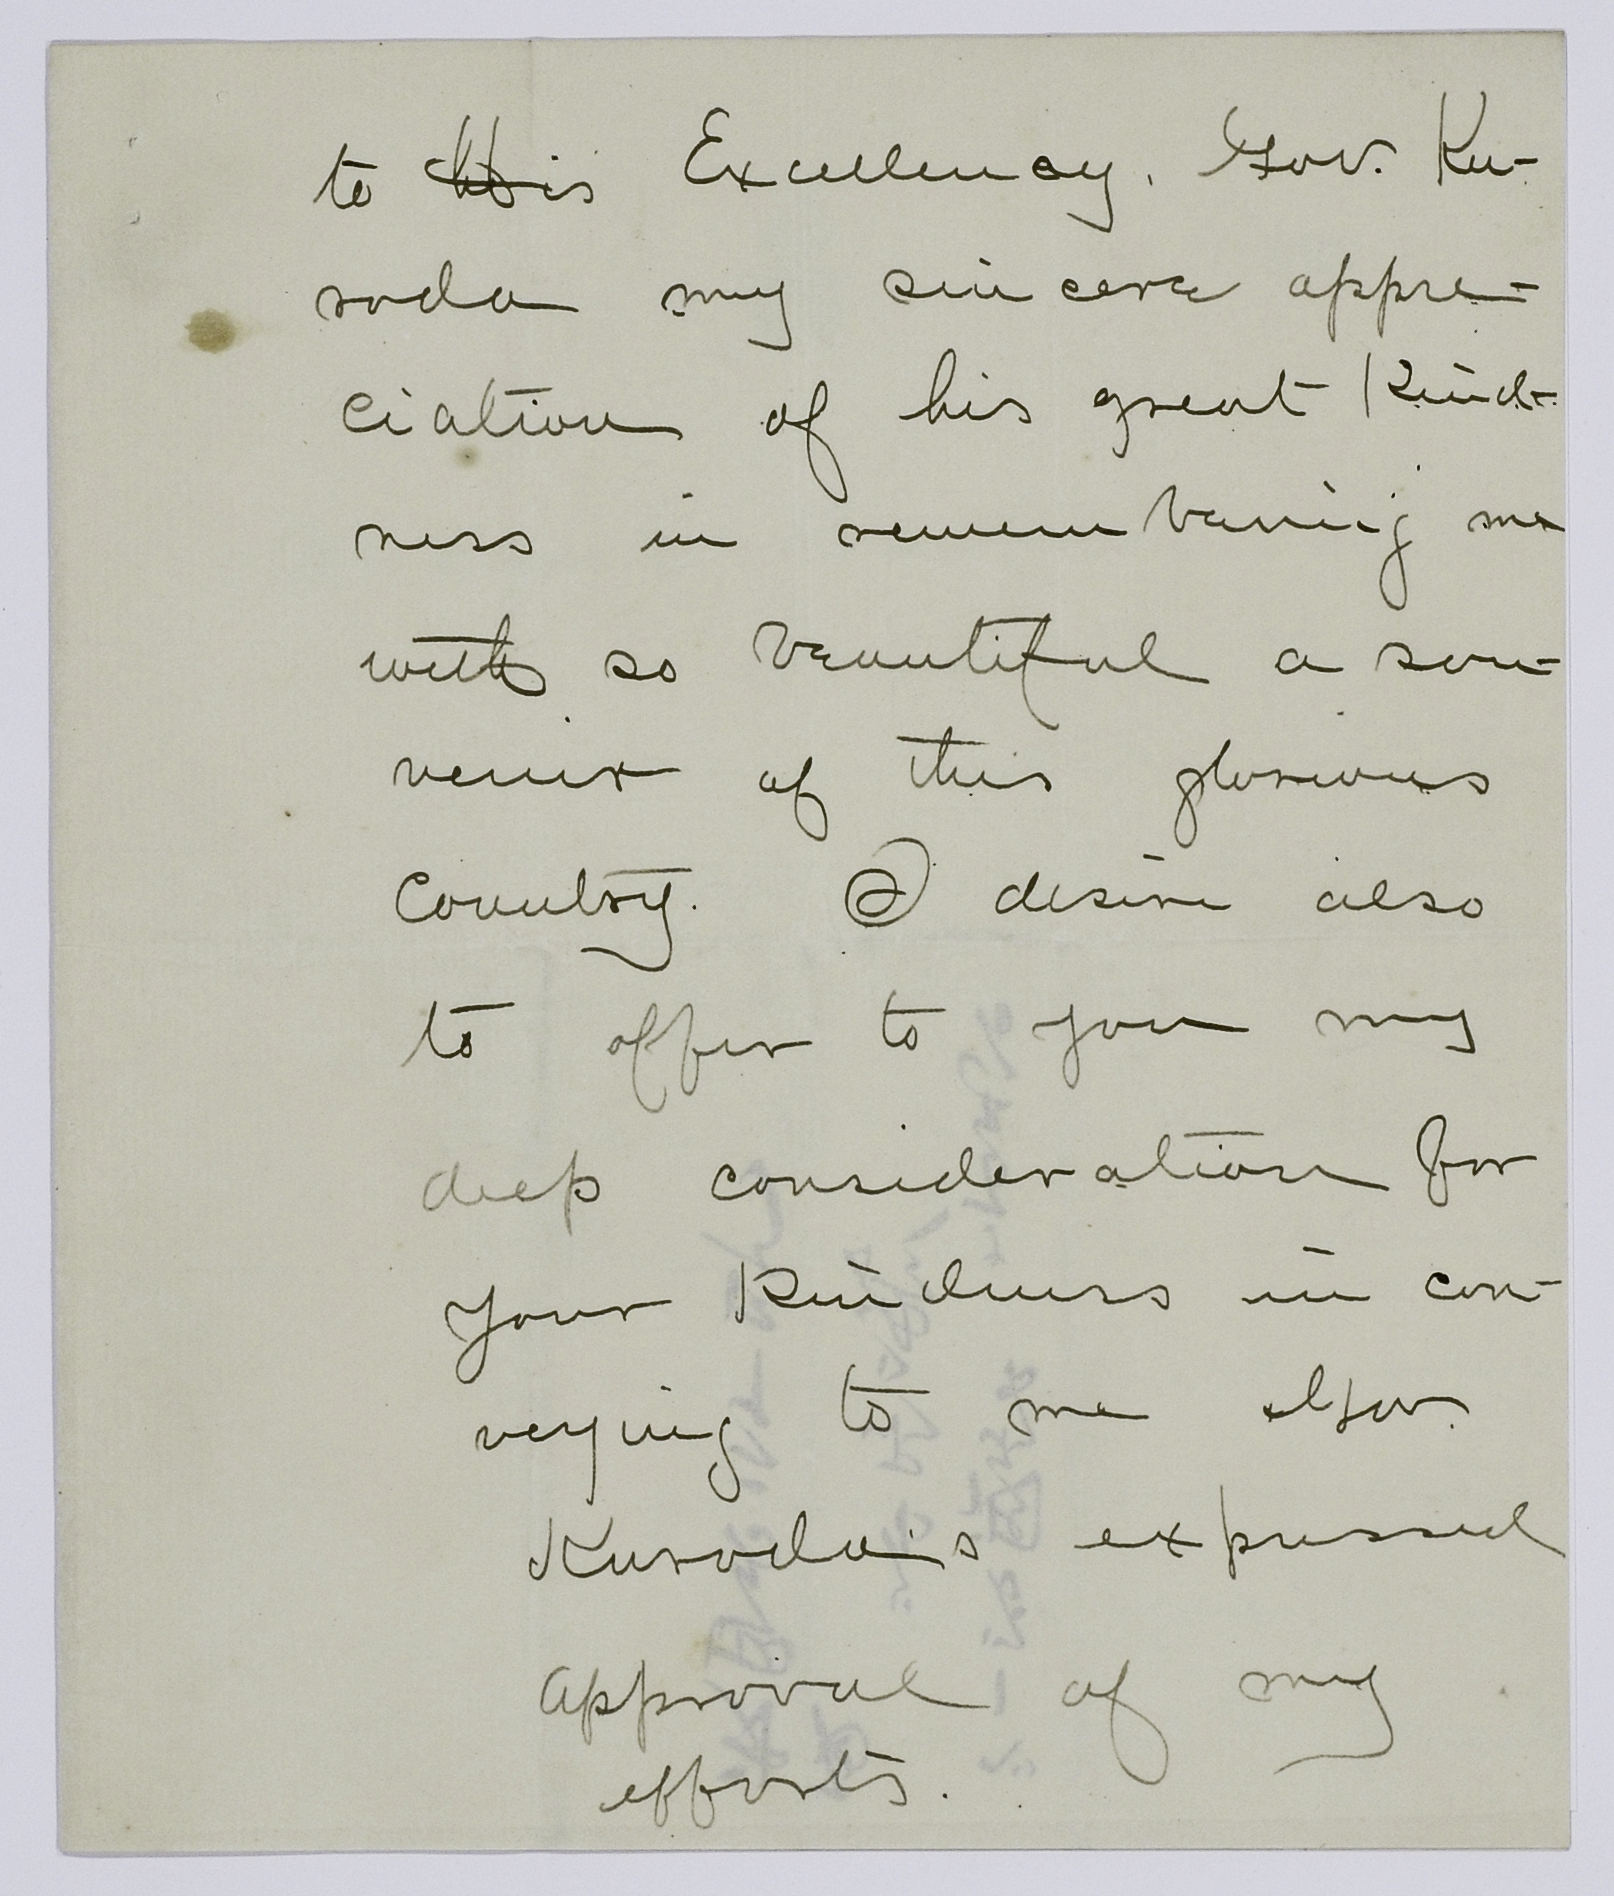 to His Excellency. Gov. Ku-
roda my sincere appre-
ciation of his great Kind-
ness in remembering me
with so beautiful a sou-
venir of this glorious
Country. I desire also
to offer to you my
deep consideration for
your Kindness in con-
veying to me Gov.
Kuroda's expressed
approval of my
efforts.